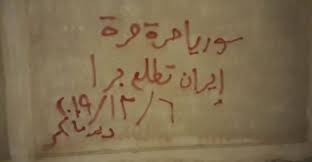 سوريا حرة حرة
إيران تطلع برا
٢٠١٩/١٢/٦